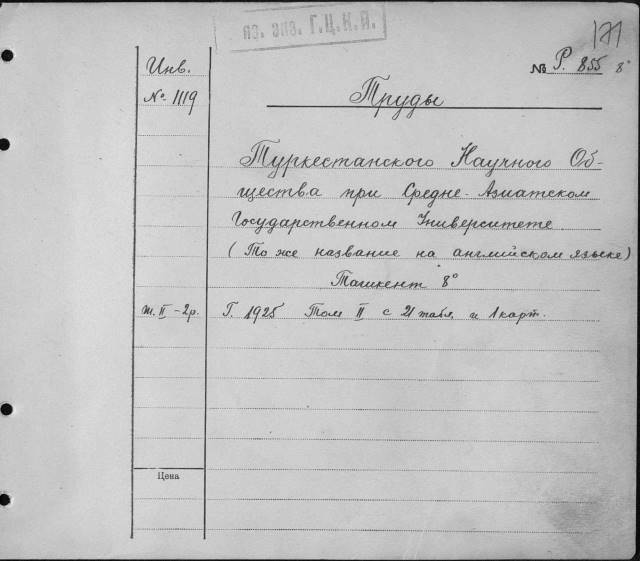 яз. экз. Г.Ц.К.И.
171
Инв.
№ 1119
№ Р. 855 8°
Труды
Туркестанского Научного Об-
щества при Средне-Азиатском
Государственном Университете
(То же название на английском языке)
Ташкент 8°
т. II – 2р.
Г. 1925 Том II с 21 табл. и 1 карт.
Цена